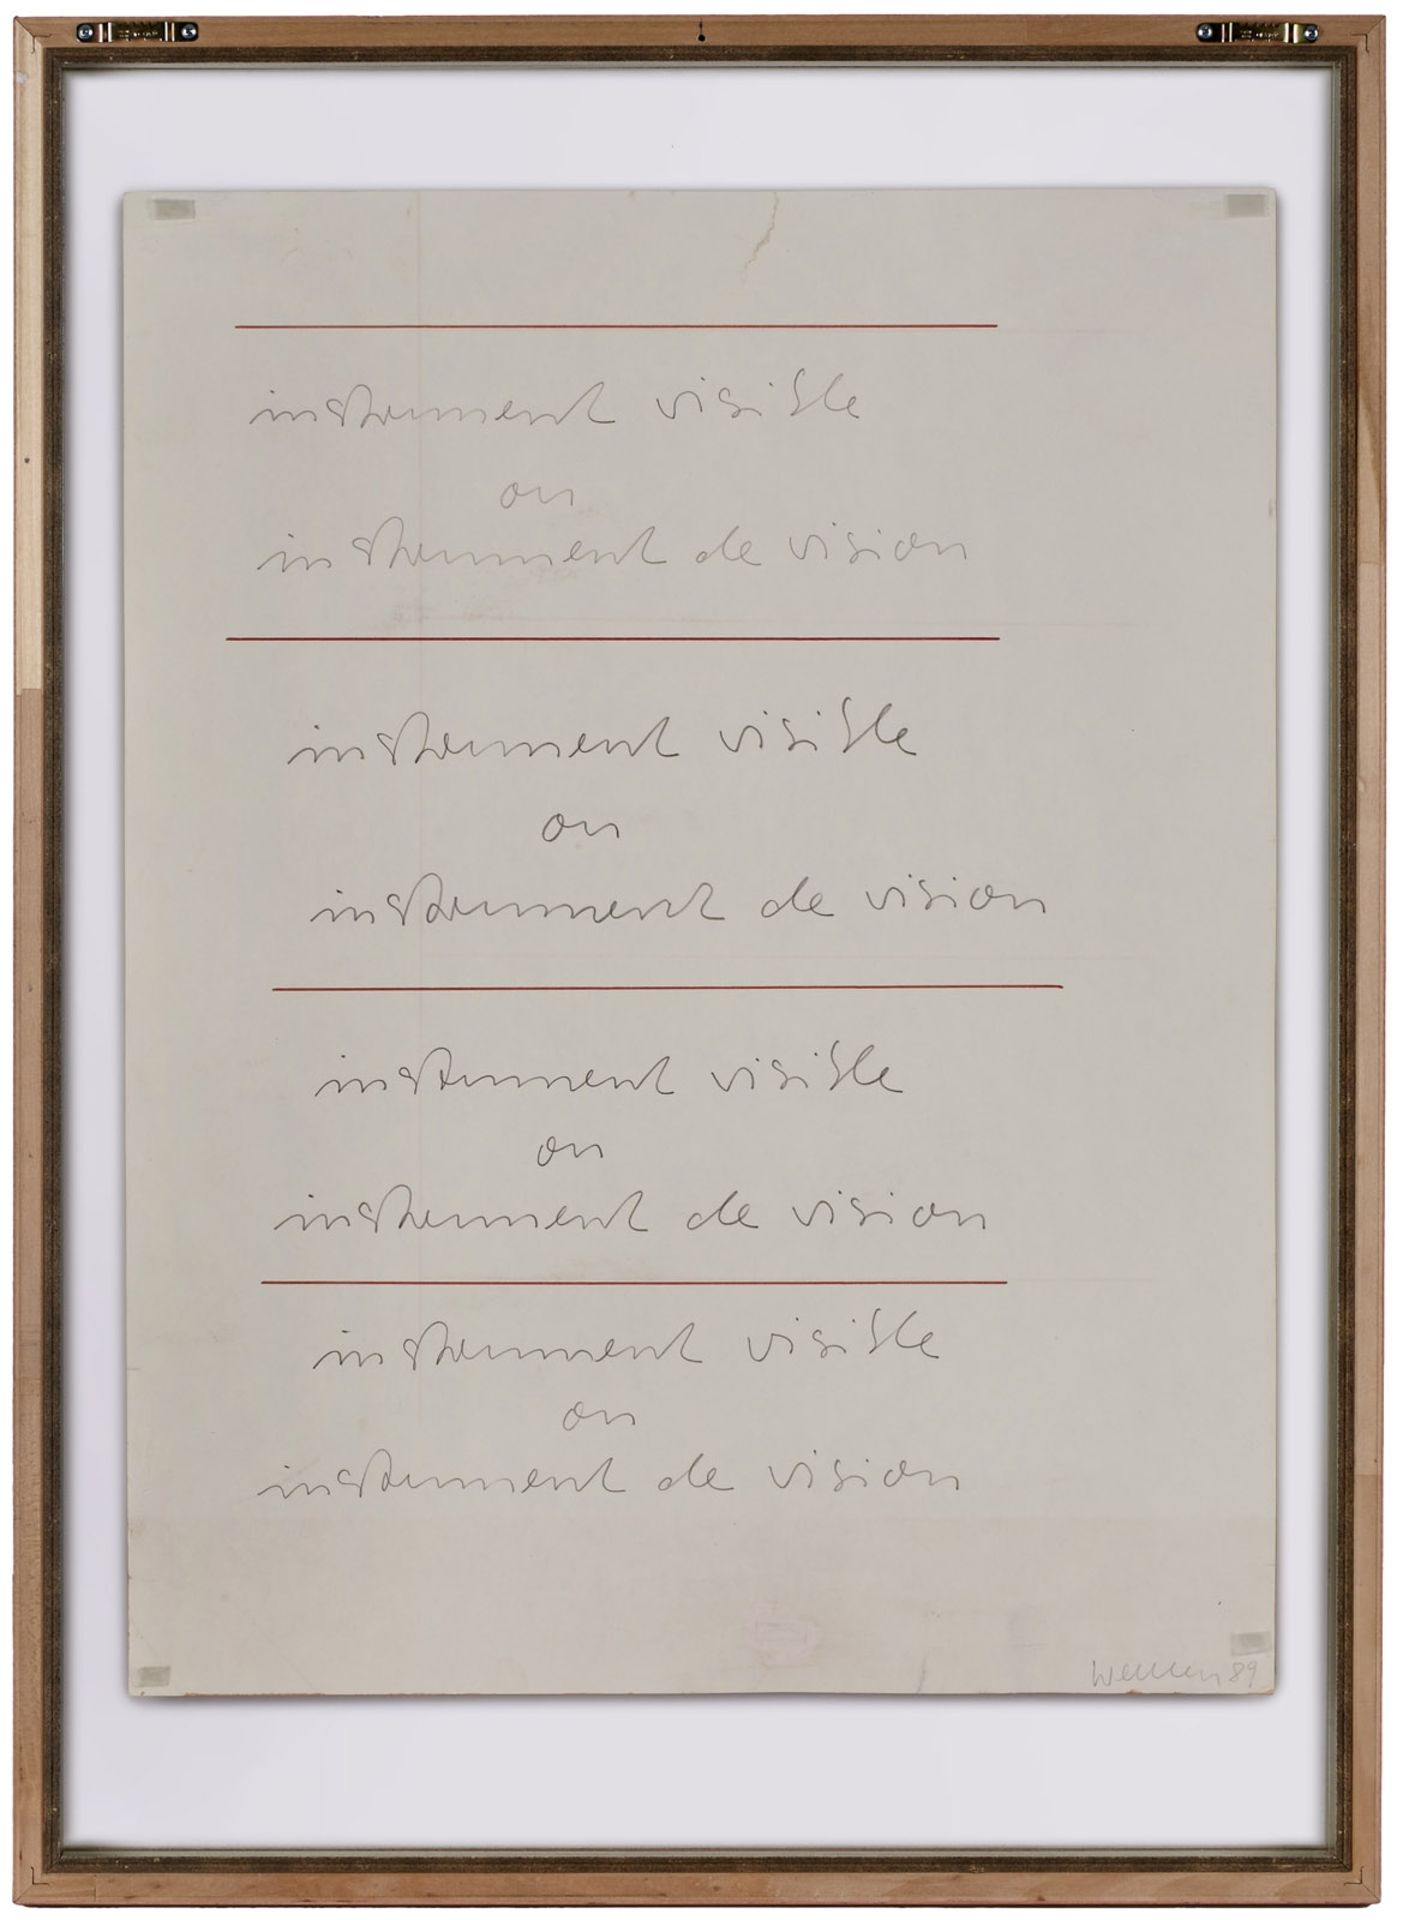 instrument visible
ou
instrument de vision
instrument visible
ou
instrument de vision
instrument visible
ou
instrument de vision
instrument visible
ou
instrument de vision
89